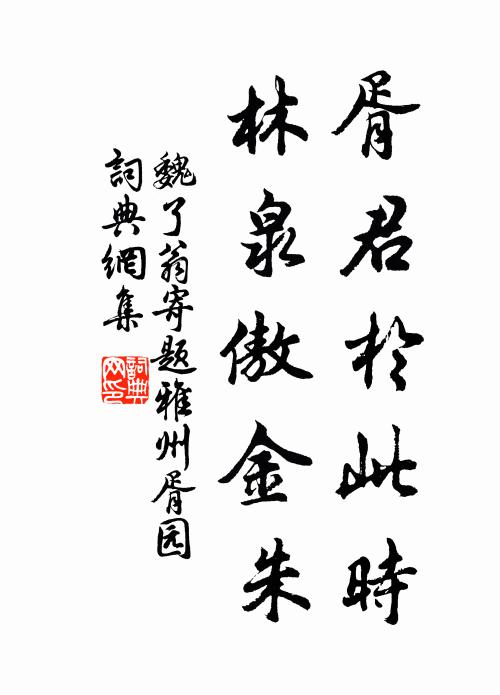 胥君於此時
林泉傲金朱
魏了翁寄题雅州胥园
詞典網集
詞典
网印